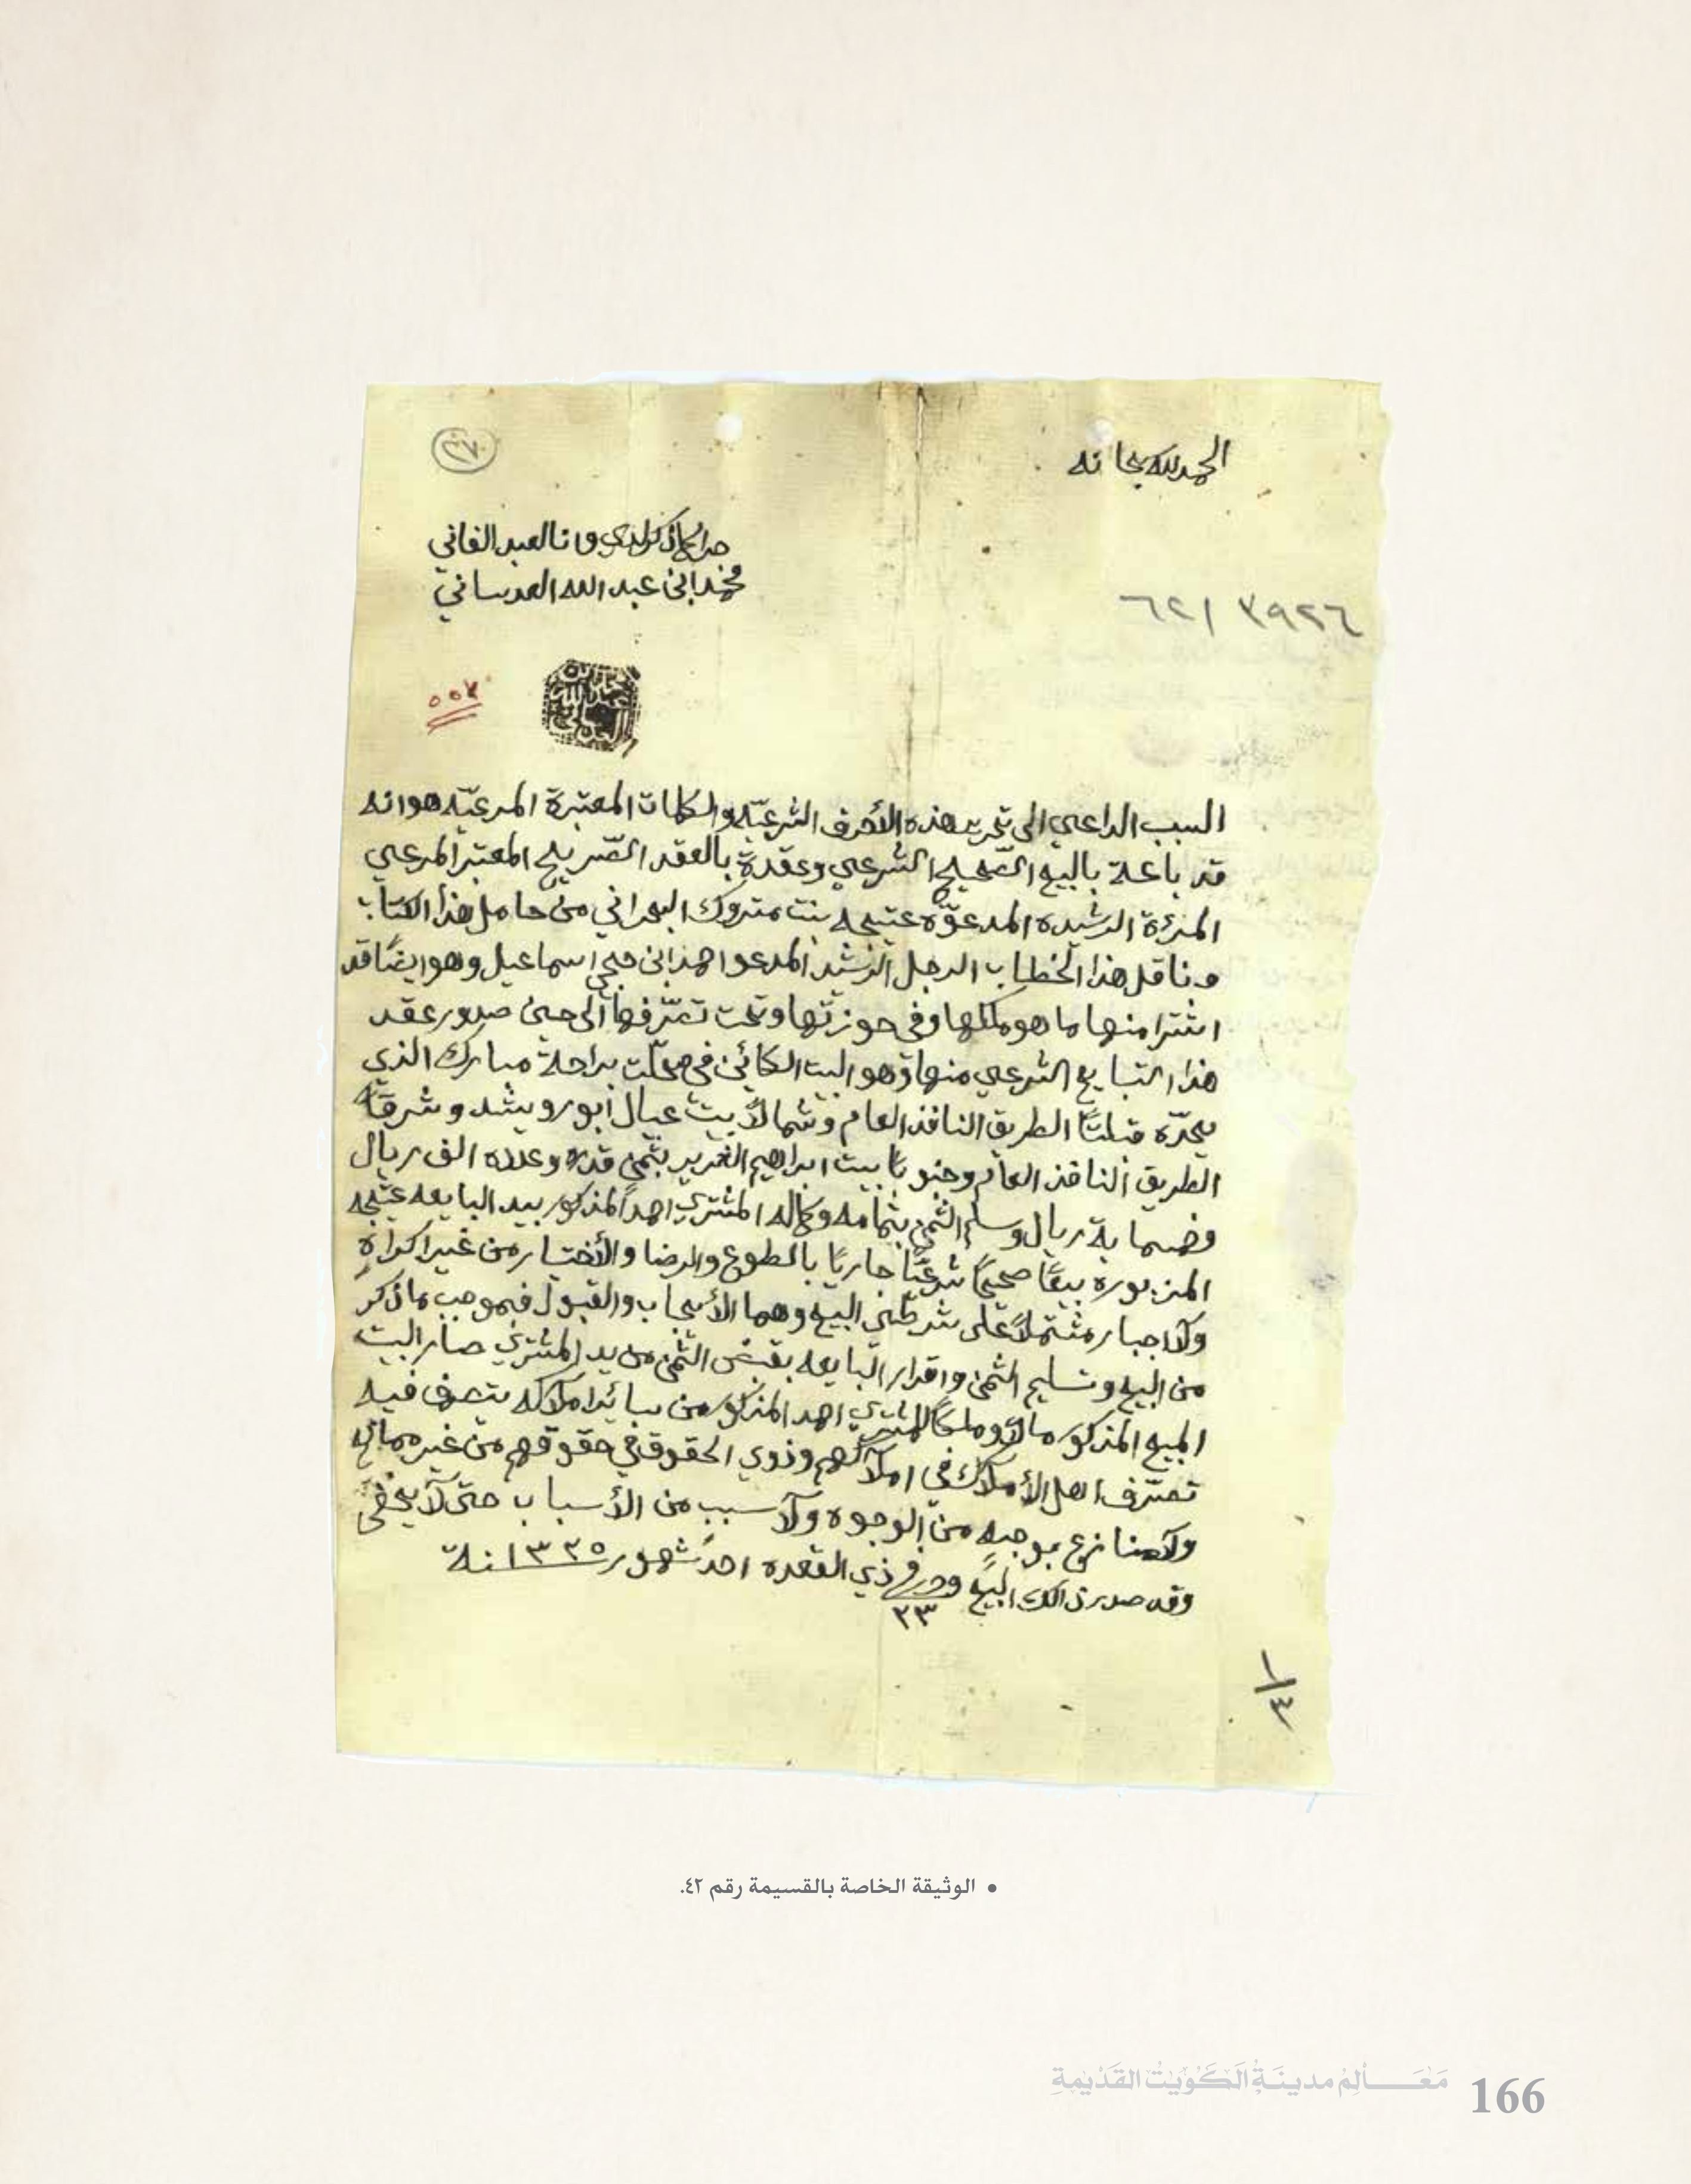 الحمد لله سبحانه
جرا ما ذكر لدي وانا العبد الفاني
محمد ابن عبد الله العدساني
٣٩٢٦ / ٦٢١
٥٥٧
محمد بن عبد الله العدساني
السبب الداعي الى تحرير هذه الأحرف الشرعيّه والكلمات المعتبرة المرعيّه هو انه
قد باعة بالبيع الصّحيح الشرعي وعقدة بالعقد الصّريح المعتبر المرعي
المرئة الرشيده المدعوّه عتيجه بنت متروك البحراني من حامل هذا الكتاب
وناقل هذا الخطاب الرجل الرشيد المدعو احمد ابن حجي اسماعيل وهو ايضًا قد
اشترا منها ما هو ملكها وفي حوزتها وتحت تصرّفها الى حين صدور عقد
هذا التبايع الشرعي منها وهو البيت الكائن في محلّت براحة مبارك الذي
يحدّه قبلتًا الطريق النافذ العام وشمالاً بيت عيال أبو رويشد وشرقًا
الطريق النافذ العام وجنوبًا بيت ابراهيم الغرير بثمن قدره وعدده الف ريال
وخمسماية ريال وسلم الثمن بتمامه وكماله المشتري احمد المذكور بيد البايعه عتيجه
المزبوره بيعًا صحيحًا شرعيًّا جاريًا بالطوع والرضا والأختيار من غير اكراه
ولا اجبار مشتملاً على شرطي البيع وهما الأيجاب والقبول فبموجب ما ذكر
من البيع وتسليم الثمن واقرار البايعه بقبض الثمن من يد المشتري صار البيت
المبيع المذكور مالاً وملكًا للمشتري احمد المذكور من سائر املاكه يتصرف فيه
تصرّف اهل الأملاك في املاكهم وذوي الحقوق في حقوقهم من غير ممانع
ولا منازع بوجهٍ من الوجوه ولا سبب من الأسباب حتى لا يخفى
وقد صدر ذالك البيع وجرى في ٢٣ ذي القعده احد شهور ١٣٢٥ سنة
١/٣
• الوثيقة الخاصة بالقسيمة رقم ٤٢.
مَعَالِمُ مدينَةِ الكُوَيْت القَدِيمَةِ 166